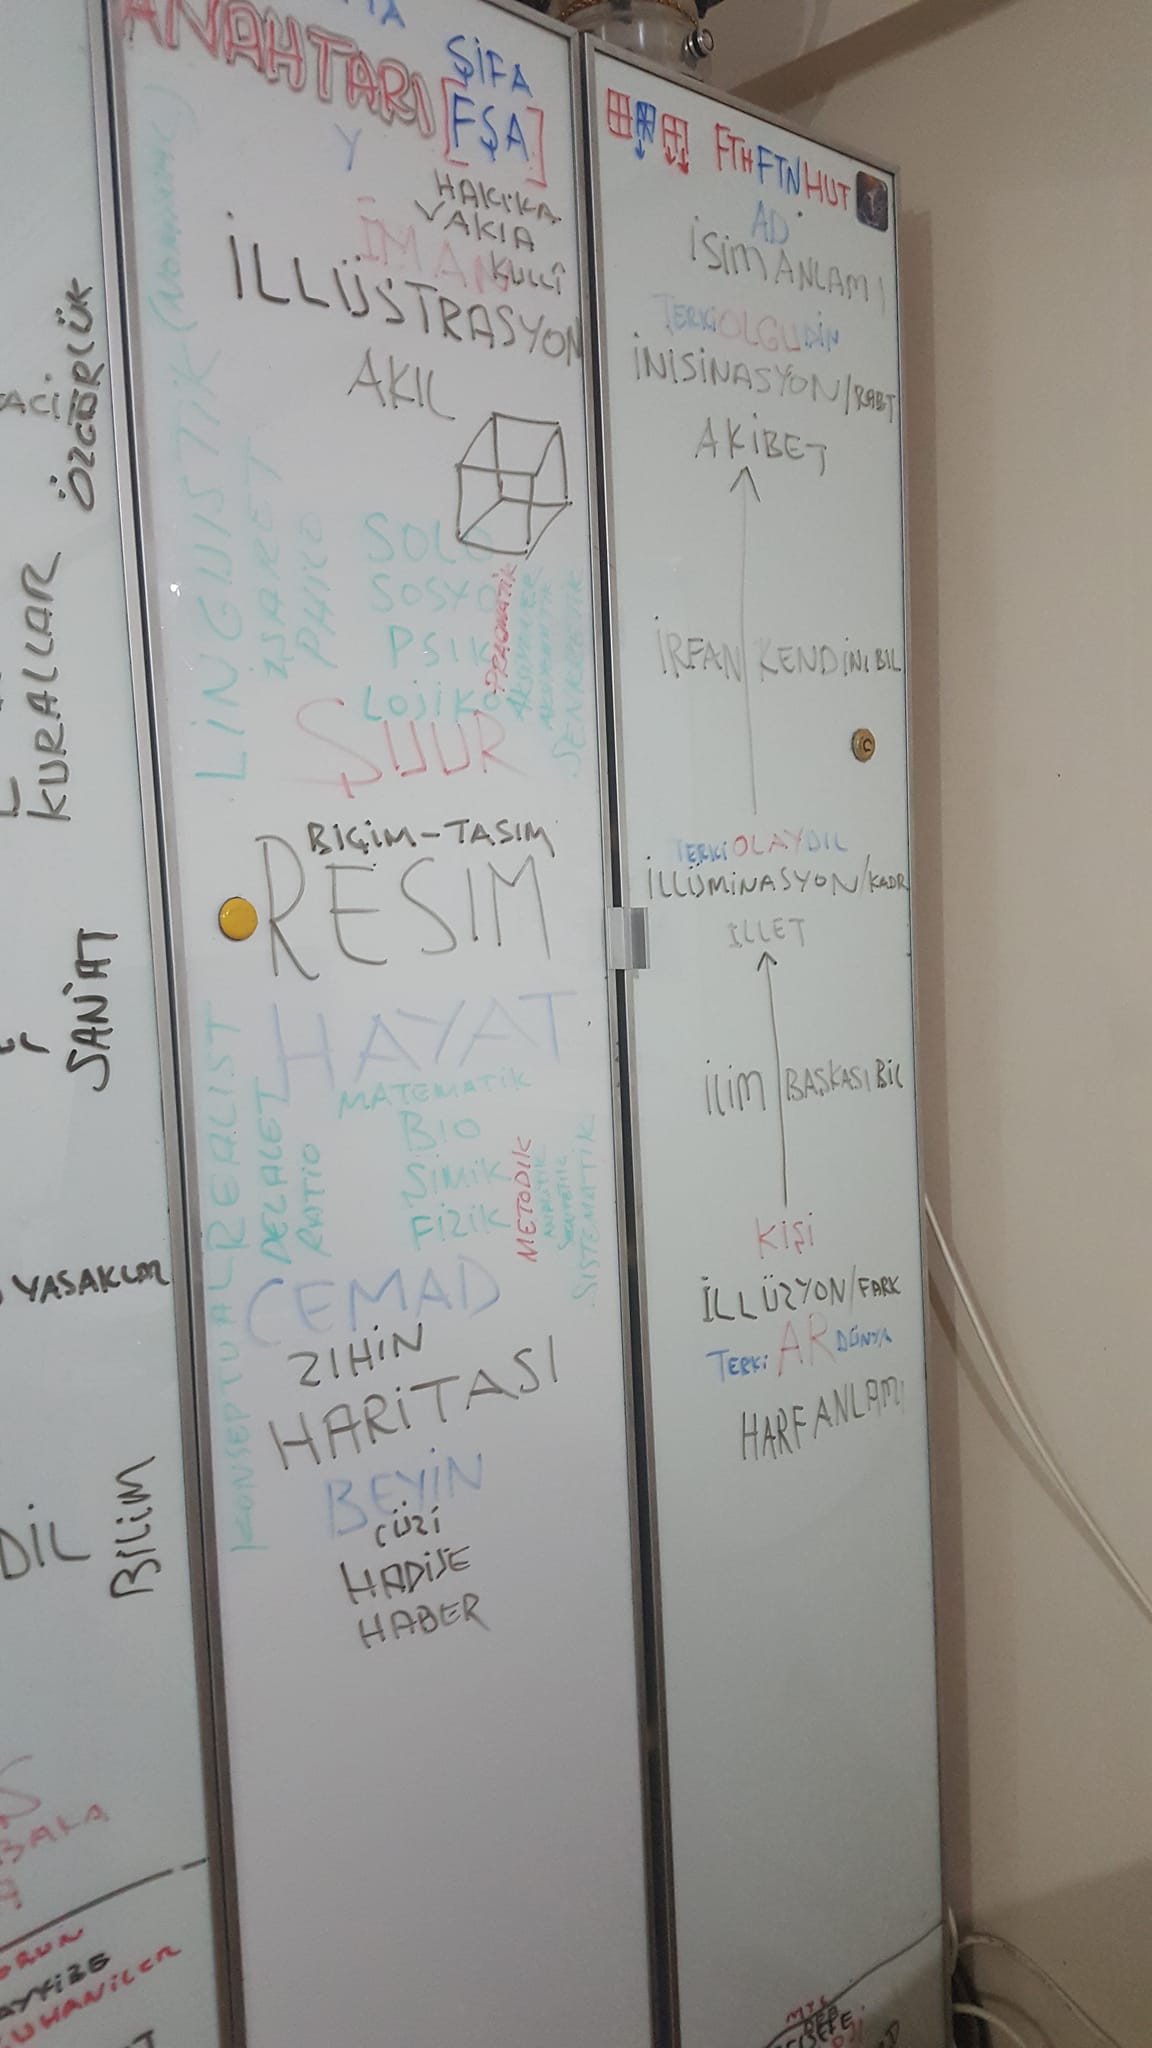 ÖZGÜRLÜK
KURALLAR
SAN'AT
YASAKLAR
DİL
BİLİM
BAKA
ANAHTARI
ŞİFA
[FŞA]
Y
HAKİKA
VAKIA
İMAN KULLÎ
İLLÜSTRASYON
AKIL
LİNGUİSTİK
İŞARET
SOLO
SOSYO
PSİKO
LOJİK
PRAGMATİK
ŞUUR
BİÇİM-TASIM
RESIM
HAYAT
KONSEPTUAL REALIST
DELALET
RATIO
MATEMATİK
BİO
SİMİK
FİZİK
METODİK
SİSTEMATTİK
CEMAD
ZIHİN
HARİTASI
BEYİN
CÜZİ
HADİSE
HABER
FTH FTN HUT
AD
İSİM ANLAMI
TERKİ OLGU DİN
İNİSİNASYON/RABT
AKİBET
İRFAN KENDİNİ BİL
TERKİ OLAY DİL
İLLÜMİNASYON/KADR
İLLET
İLİM BAŞKASI BİL
KİŞİ
İLLÜZYON/FARK
TERKİ AR DÜNYA
HARF ANLAMI